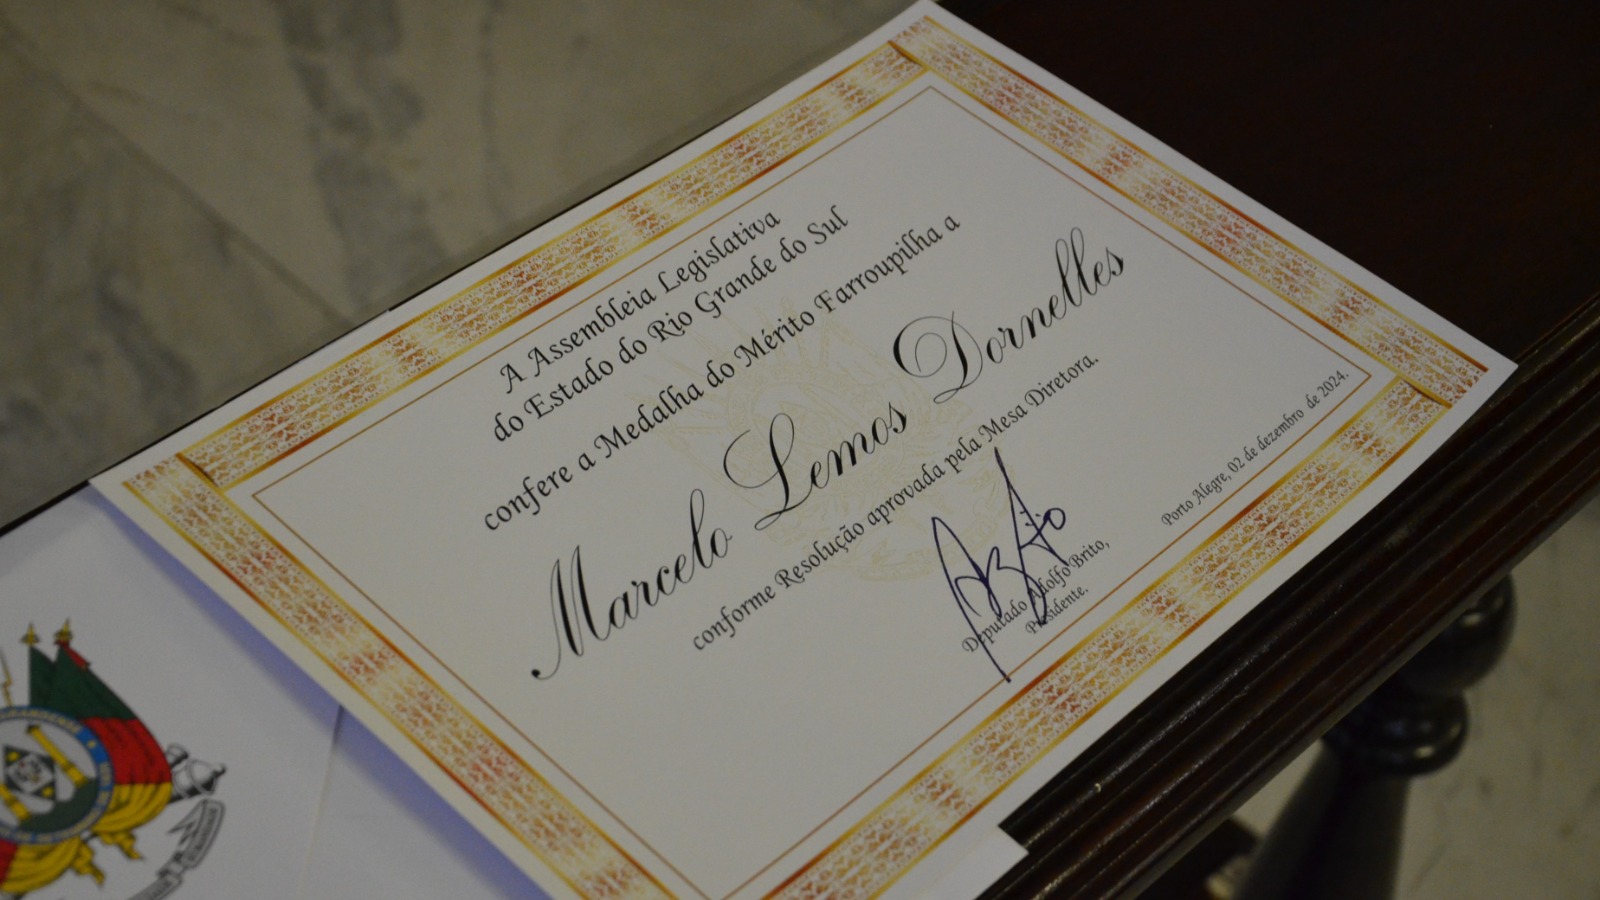 A Assembleia Legislativa
do Estado do Rio Grande do Sul
confere a Medalha do Mérito Farroupilha a
Marcelo Lemos Dornelles
conforme Resolução aprovada pela Mesa Diretora.
Porto Alegre, 02 de dezembro de 2024.
Deputado Adolfo Brito,
Presidente.